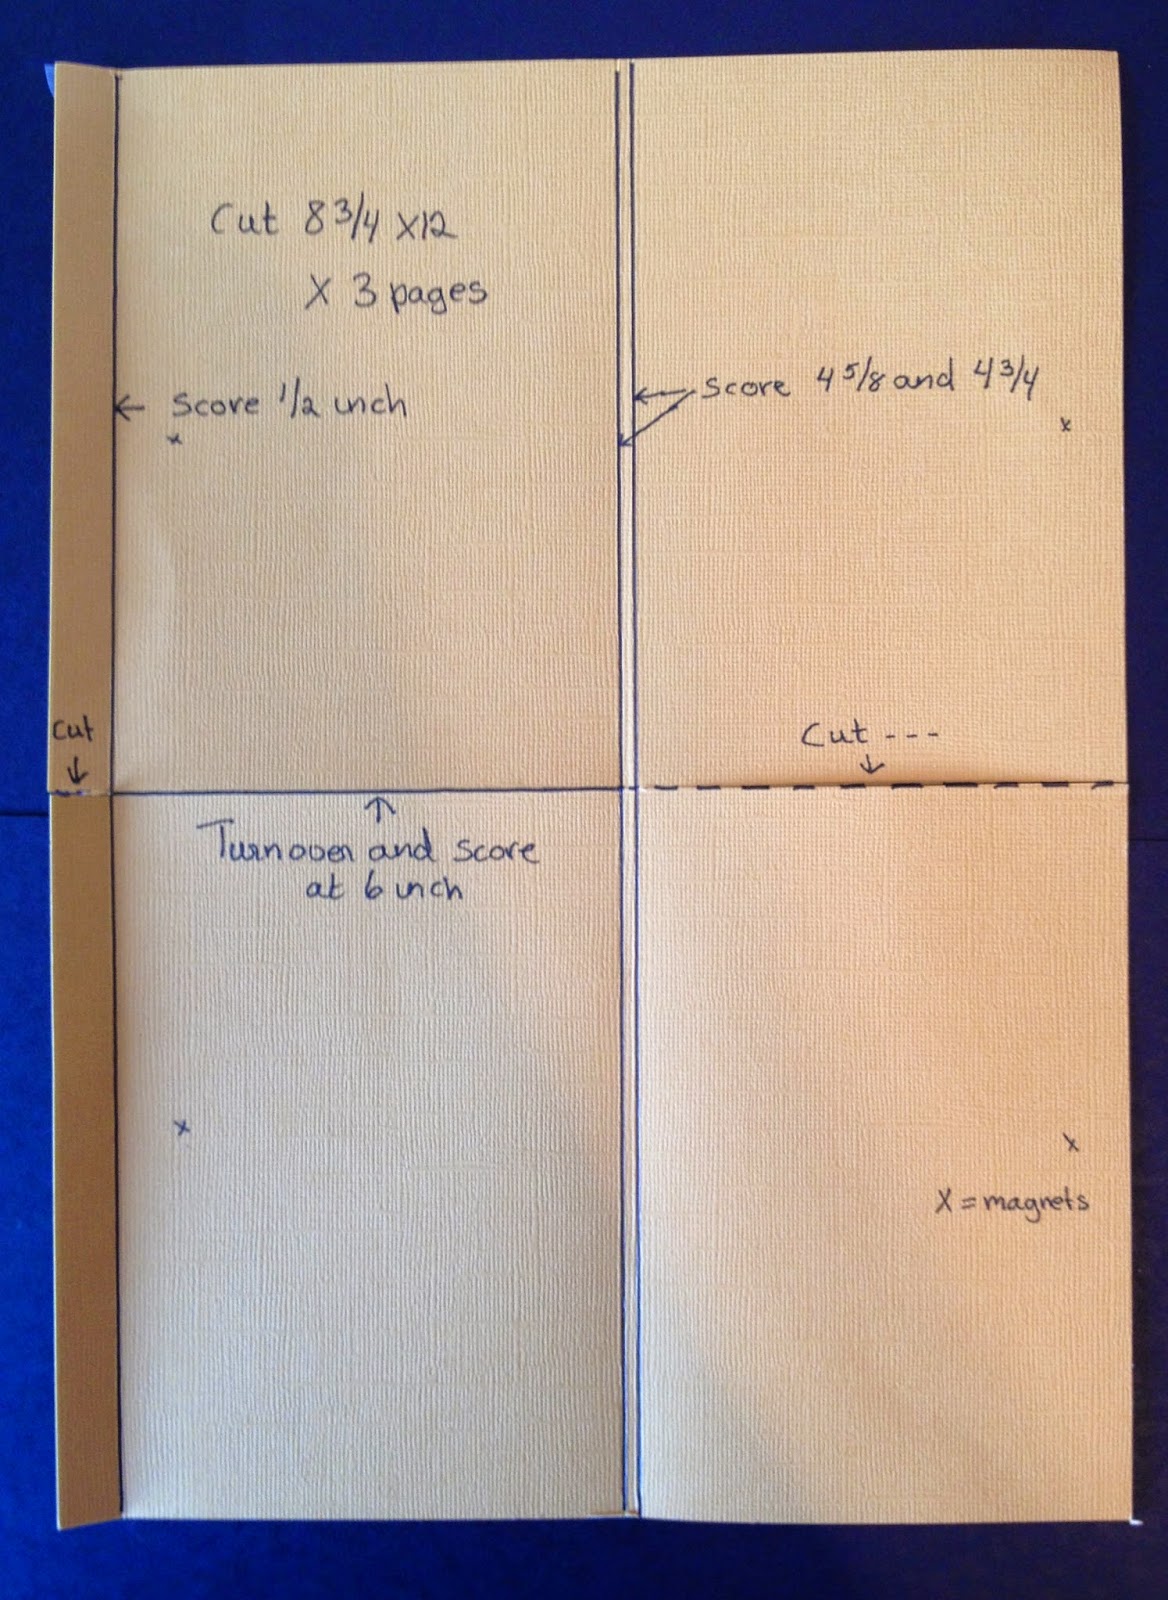 Cut 8 3/4 x12
X 3 pages
Score 4 5/8 and 4 3/4
Score 1/2 inch
x
x
Cut
Cut ---
Turnover and score
at 6 inch
x
x
X = magnets